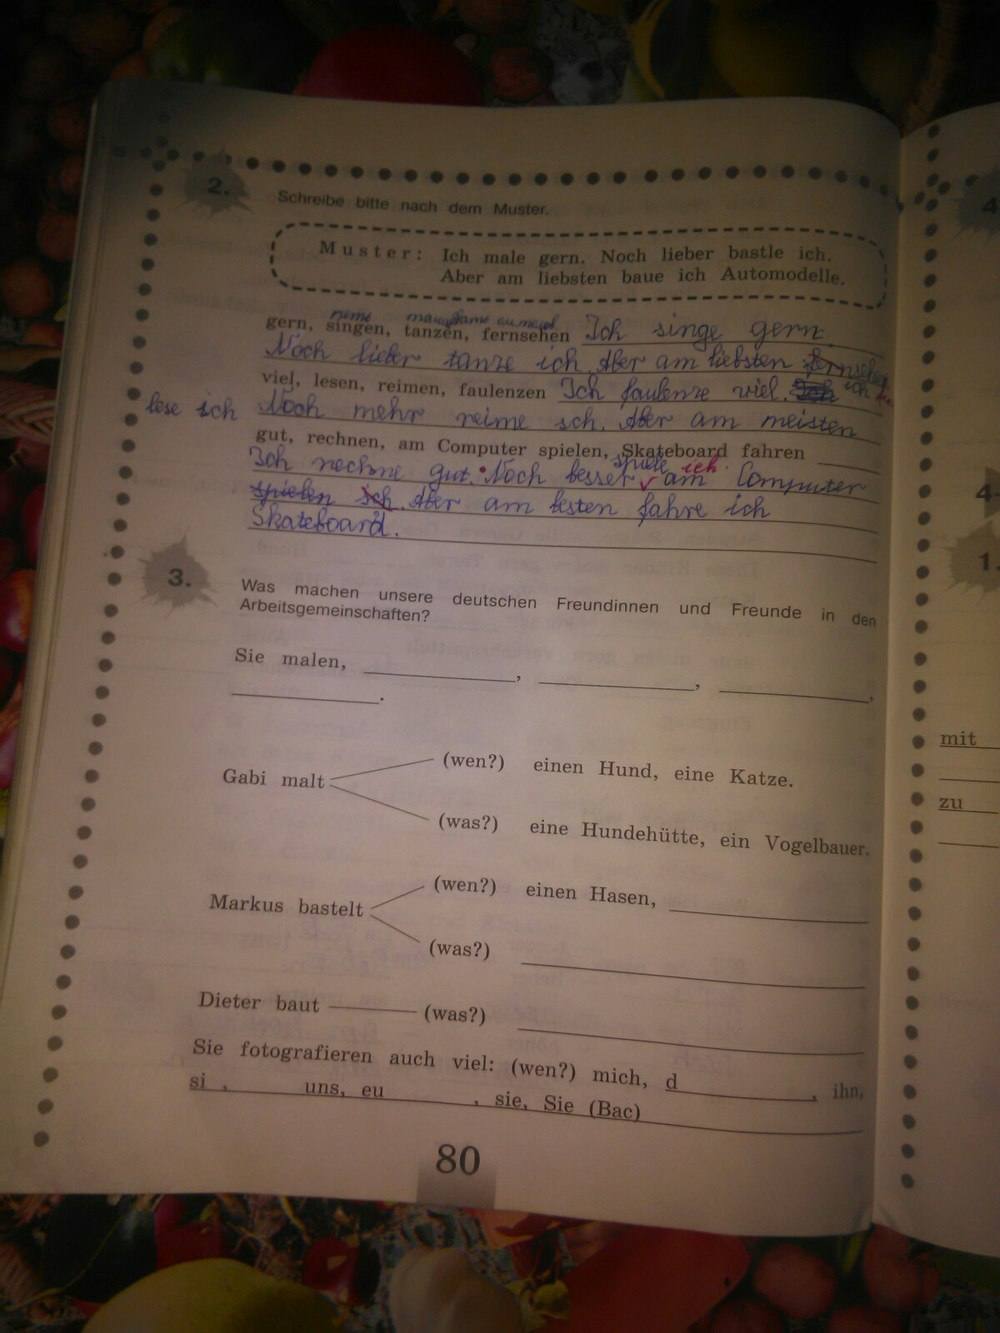 2.
Schreibe bitte nach dem Muster.
Muster: Ich male gern. Noch lieber bastle ich.
Aber am liebsten baue ich Automodelle.
gern, singen, tanzen, fernsehen Ich singe gern.
Noch lieber tanze ich. Aber am liebsten
viel, lesen, reimen, faulenzen Ich faulenze viel. ich
lese ich Noch mehr reime ich. Aber am meisten
gut, rechnen, am Computer spielen, Skateboard fahren
spiele ich
Ich rechne gut. Noch besser am Computer
spielen ich. Aber am besten fahre ich
Skateboard.
3.
Was machen unsere deutschen Freundinnen und Freunde in den
Arbeitsgemeinschaften?
Sie malen, , , ,
.
(wen?) einen Hund, eine Katze.
Gabi malt
(was?) eine Hundehütte, ein Vogelbauer.
(wen?) einen Hasen,
Markus bastelt
(was?)
Dieter baut (was?)
Sie fotografieren auch viel: (wen?) mich, d , ihn,
si , uns, eu , sie, Sie (Вас)
80
4
4
1.
mit
zu